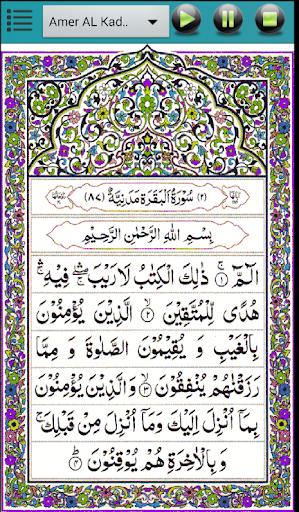 Amer AL Kad..
(٢) سُوْرَةُ الْبَقَرَةِ مَدَنِيَّةٌ (٨٧)
بِسْمِ اللّٰهِ الرَّحْمٰنِ الرَّحِيْمِ
الٓمّٓ ۚ ﴿١﴾ ذٰلِكَ الْكِتٰبُ لَا رَيْبَ ۛ فِيْهِ ۛ
هُدًى لِّلْمُتَّقِيْنَ ۙ ﴿٢﴾ الَّذِيْنَ يُؤْمِنُوْنَ
بِالْغَيْبِ وَ يُقِيْمُوْنَ الصَّلٰوةَ وَ مِمَّا
رَزَقْنٰهُمْ يُنْفِقُوْنَ ۙ ﴿٣﴾ وَالَّذِيْنَ يُؤْمِنُوْنَ
بِمَاۤ اُنْزِلَ اِلَيْكَ وَمَاۤ اُنْزِلَ مِنْ قَبْلِكَ ۚ
وَ بِالْاٰخِرَةِ هُمْ يُوْقِنُوْنَ ؕ ﴿٤﴾